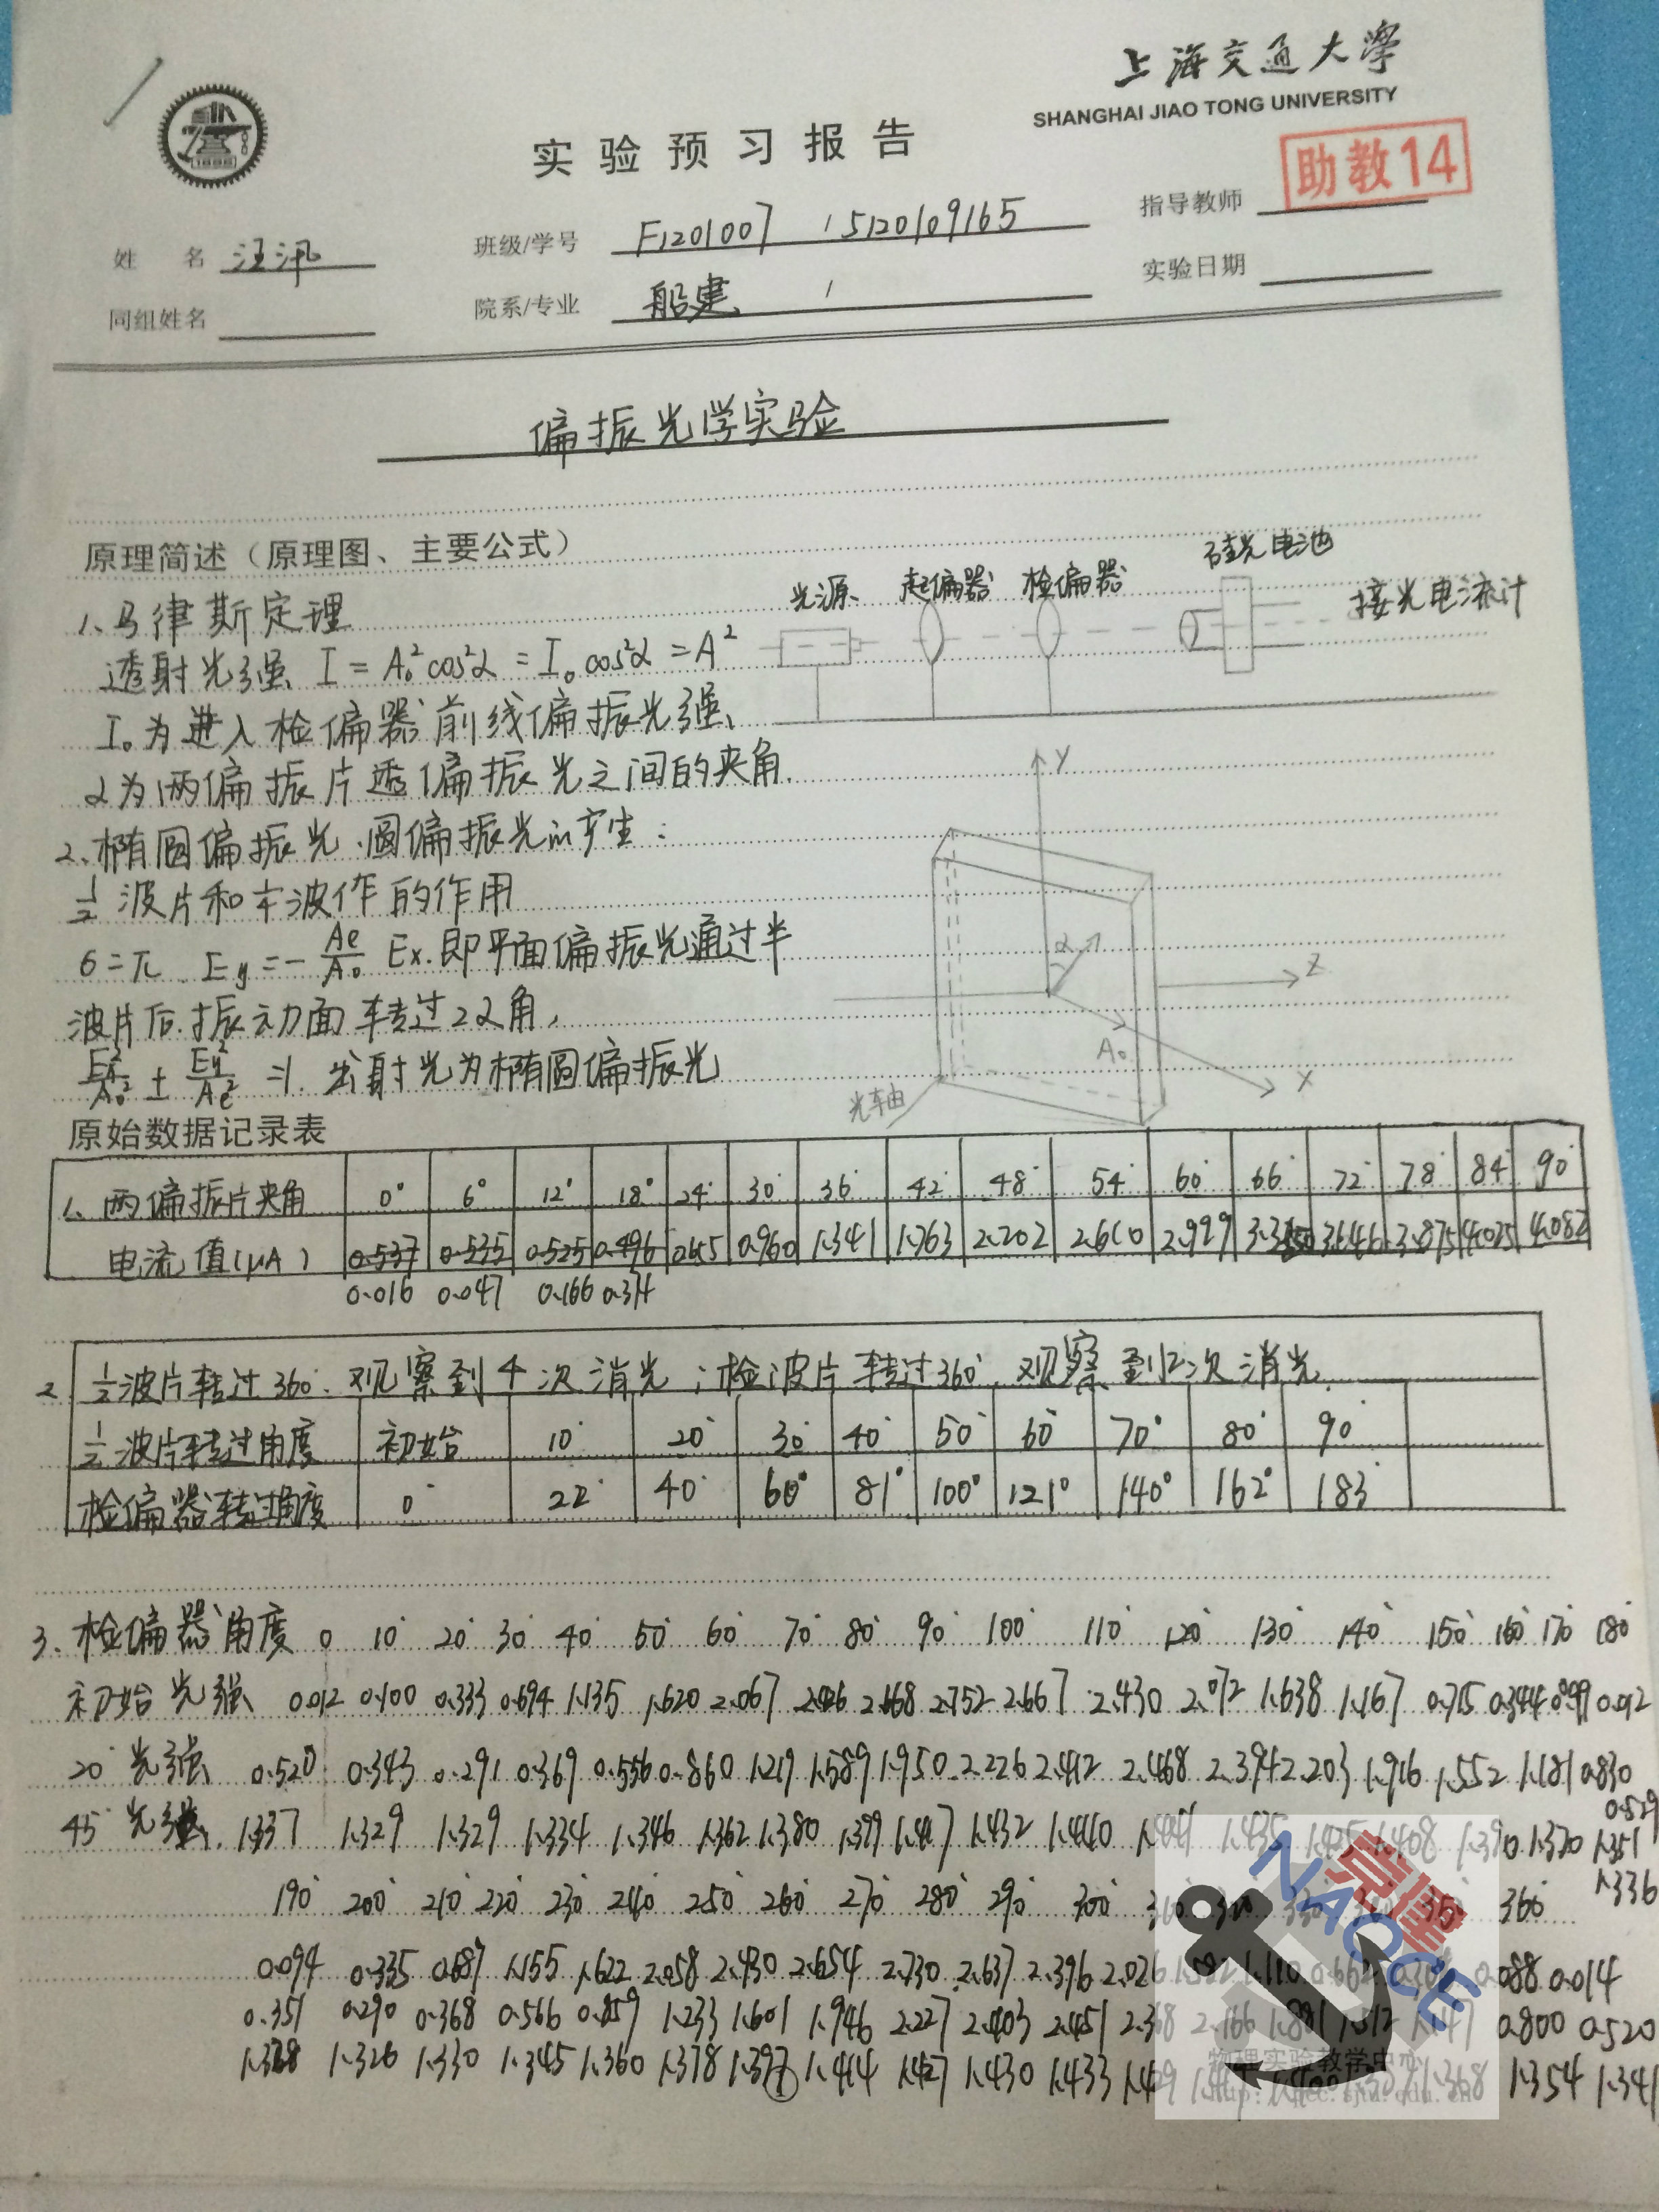 上海交通大學
SHANGHAI JIAO TONG UNIVERSITY
1896
实验预习报告
助教14
姓 名 汪汛 班级/学号 F1201007 / 5120109165 指导教师
同组姓名 院系/专业 船建 / 实验日期
偏振光学实验
原理简述（原理图、主要公式）
光源 起偏器 检偏器 硅光电池 接光电流计
1、马律斯定理
透射光强 I = A₀²cos²α = I₀cos²α = A²
I₀为进入检偏器前线偏振光强、
α为两偏振片透偏振光之间的夹角.
2、椭圆偏振光、圆偏振光的产生：
1/2波片和1/4波作的作用
δ=π. Ey = -Ae/A₀ Ex. 即平面偏振光通过半
波片后.振动面转过2α角,
Ex²/A₀² ± Ey²/Ae² =1. 出射光为椭圆偏振光
Y
α
Z
A₀
X
光轴
原始数据记录表
1、两偏振片夹角 0° 6° 12° 18° 24° 30° 36° 42° 48° 54° 60° 66° 72° 78° 84° 90°
电流值(μA) 0.537 0.535 0.525 0.496 0.960 1.341 1.763 2.202 2.610 2.999 3.646 3.875 4.025 4.082
0.016 0.047 0.166 0.374
2、1/2波片转过360°. 观察到4次消光；检波片转过360°, 观察到2次消光.
1/2波片转过角度 初始 10° 20° 30° 40° 50° 60° 70° 80° 90°
检偏器转过角度 0° 22° 40° 60° 81° 100° 121° 140° 162° 183°
3、检偏器角度 0 10° 20° 30° 40° 50° 60° 70° 80° 90° 100° 110° 120° 130° 140° 150° 160° 170° 180°
初始光强 0.012 0.100 0.333 0.694 1.135 1.620 2.067 2.668 2.752 2.667 2.430 2.072 1.638 1.167 0.715 0.344 0.099 0.012
20°光强 0.520 0.343 0.291 0.369 0.556 0.860 1.219 1.589 1.950 2.226 2.412 2.468 2.394 2.203 1.916 1.552 1.181 0.830
0.529
45°光强 1.337 1.329 1.329 1.334 1.346 1.362 1.380 1.399 1.417 1.432 1.440 1.435 1.425 1.408 1.390 1.370 1.351
1.336
190° 200° 210° 220° 230° 240° 250° 260° 270° 280° 290° 300° 360°
0.094 0.335 0.687 1.155 1.622 2.058 2.430 2.654 2.730 2.637 2.396 2.026 1.110 0.088 0.014
0.351 0.290 0.368 0.566 0.859 1.233 1.601 1.946 2.227 2.403 2.451 2.368 2.166 1.881 1.512 0.800 0.520
1.326 1.330 1.345 1.360 1.378 1.397 1.414 1.427 1.430 1.433 1.368 1.354 1.341
①
党建
NAOCE
物理实验教学中心